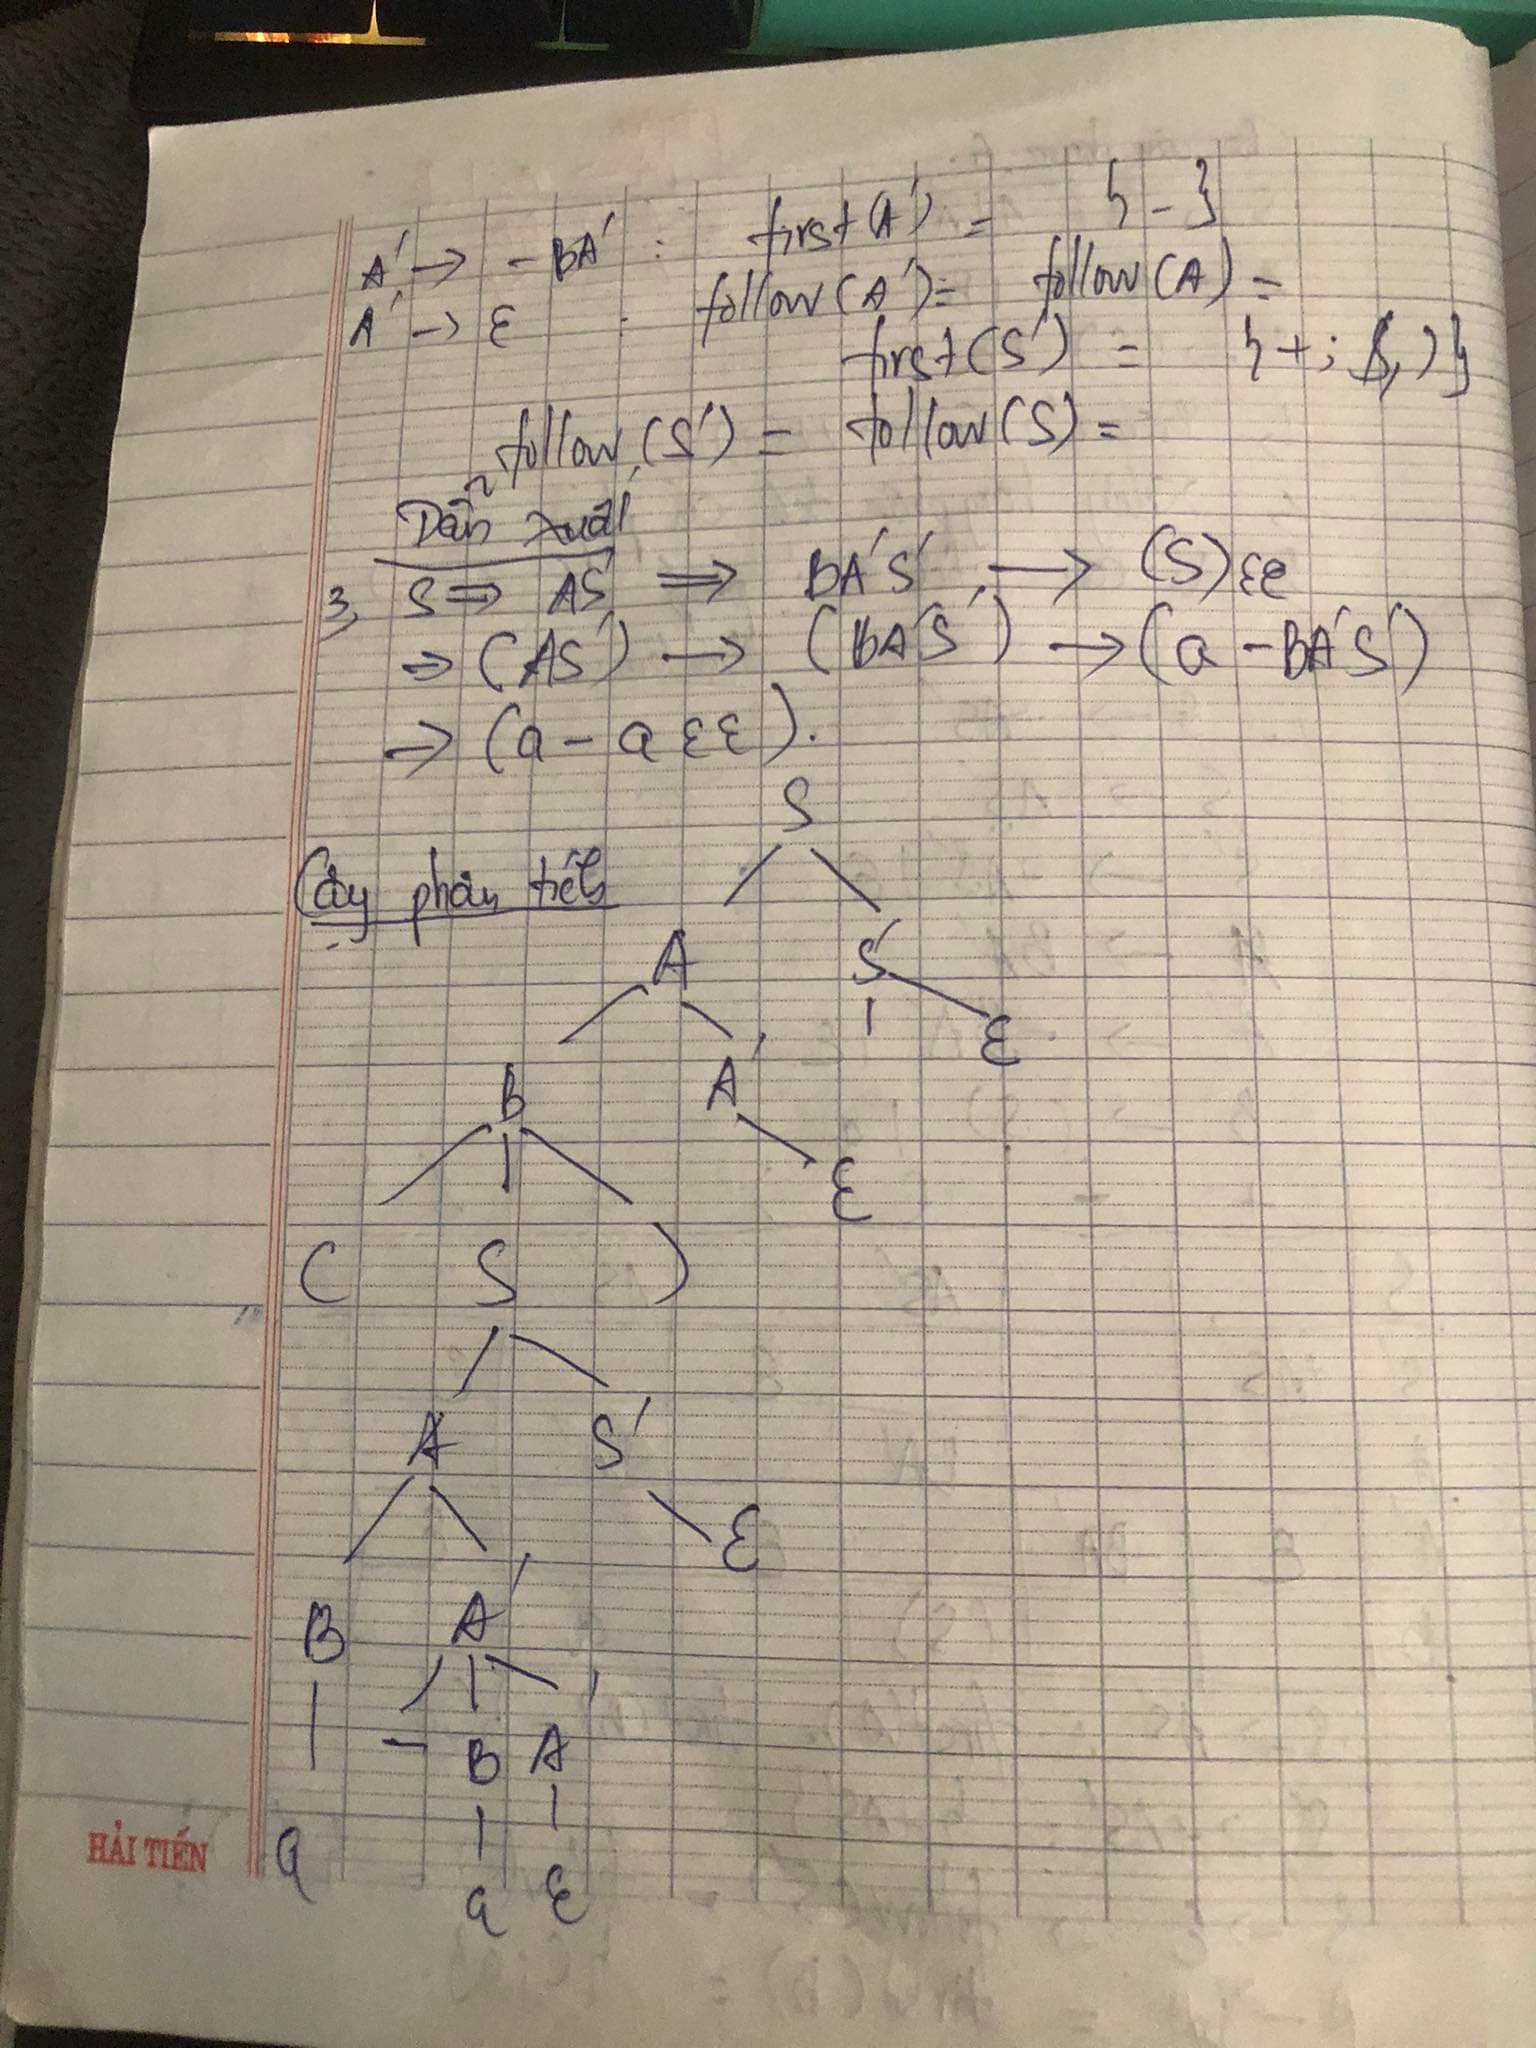 A' → - BA' : first(A') = { - }
A' → ε . follow(A') = follow(A) =
first(S') = { + ; $, ) }
follow(S') = follow(S) =
Dẫn xuất
3, S ⇒ AS' ⇒ BA'S' → (S)εε
⇒ (AS') → (BA'S') → (a - BA'S')
⇒ (a - a εε).
S
Cây phân tích
A S'
ε
B A'
ε
( S )
A S'
ε
B A'
- B A'
HẢI TIẾN
a
a ε